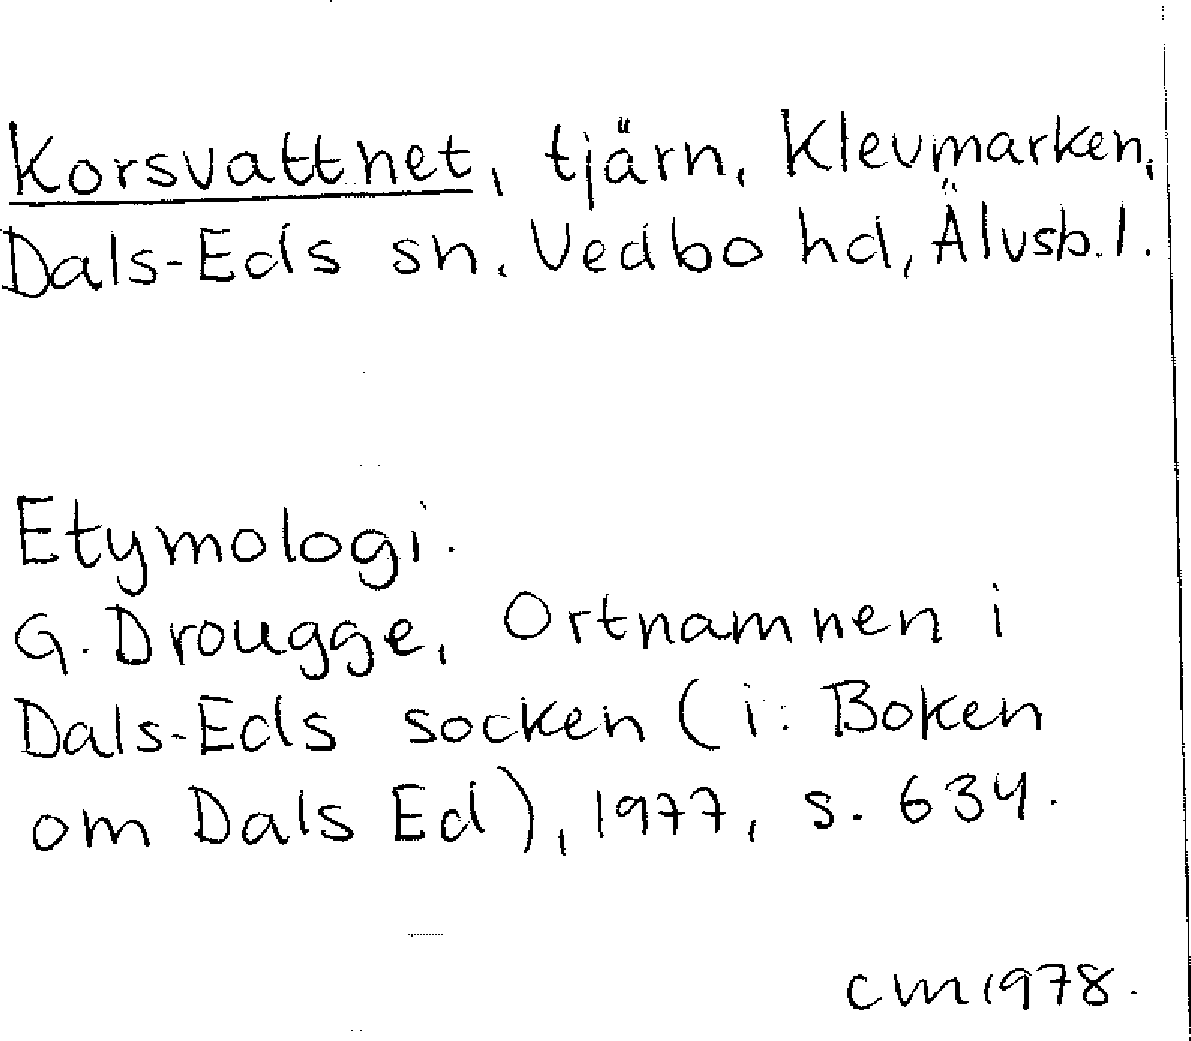 Korsvattnet, tjärn, Klevmarken,
Dals-Eds sn. Vedbo hd, Älvsb. l.
Etymologi.
G. Drougge, Ortnamnen i
Dals-Eds socken (i: Boken
om Dals Ed), 1977, s. 634.
CM 1978.